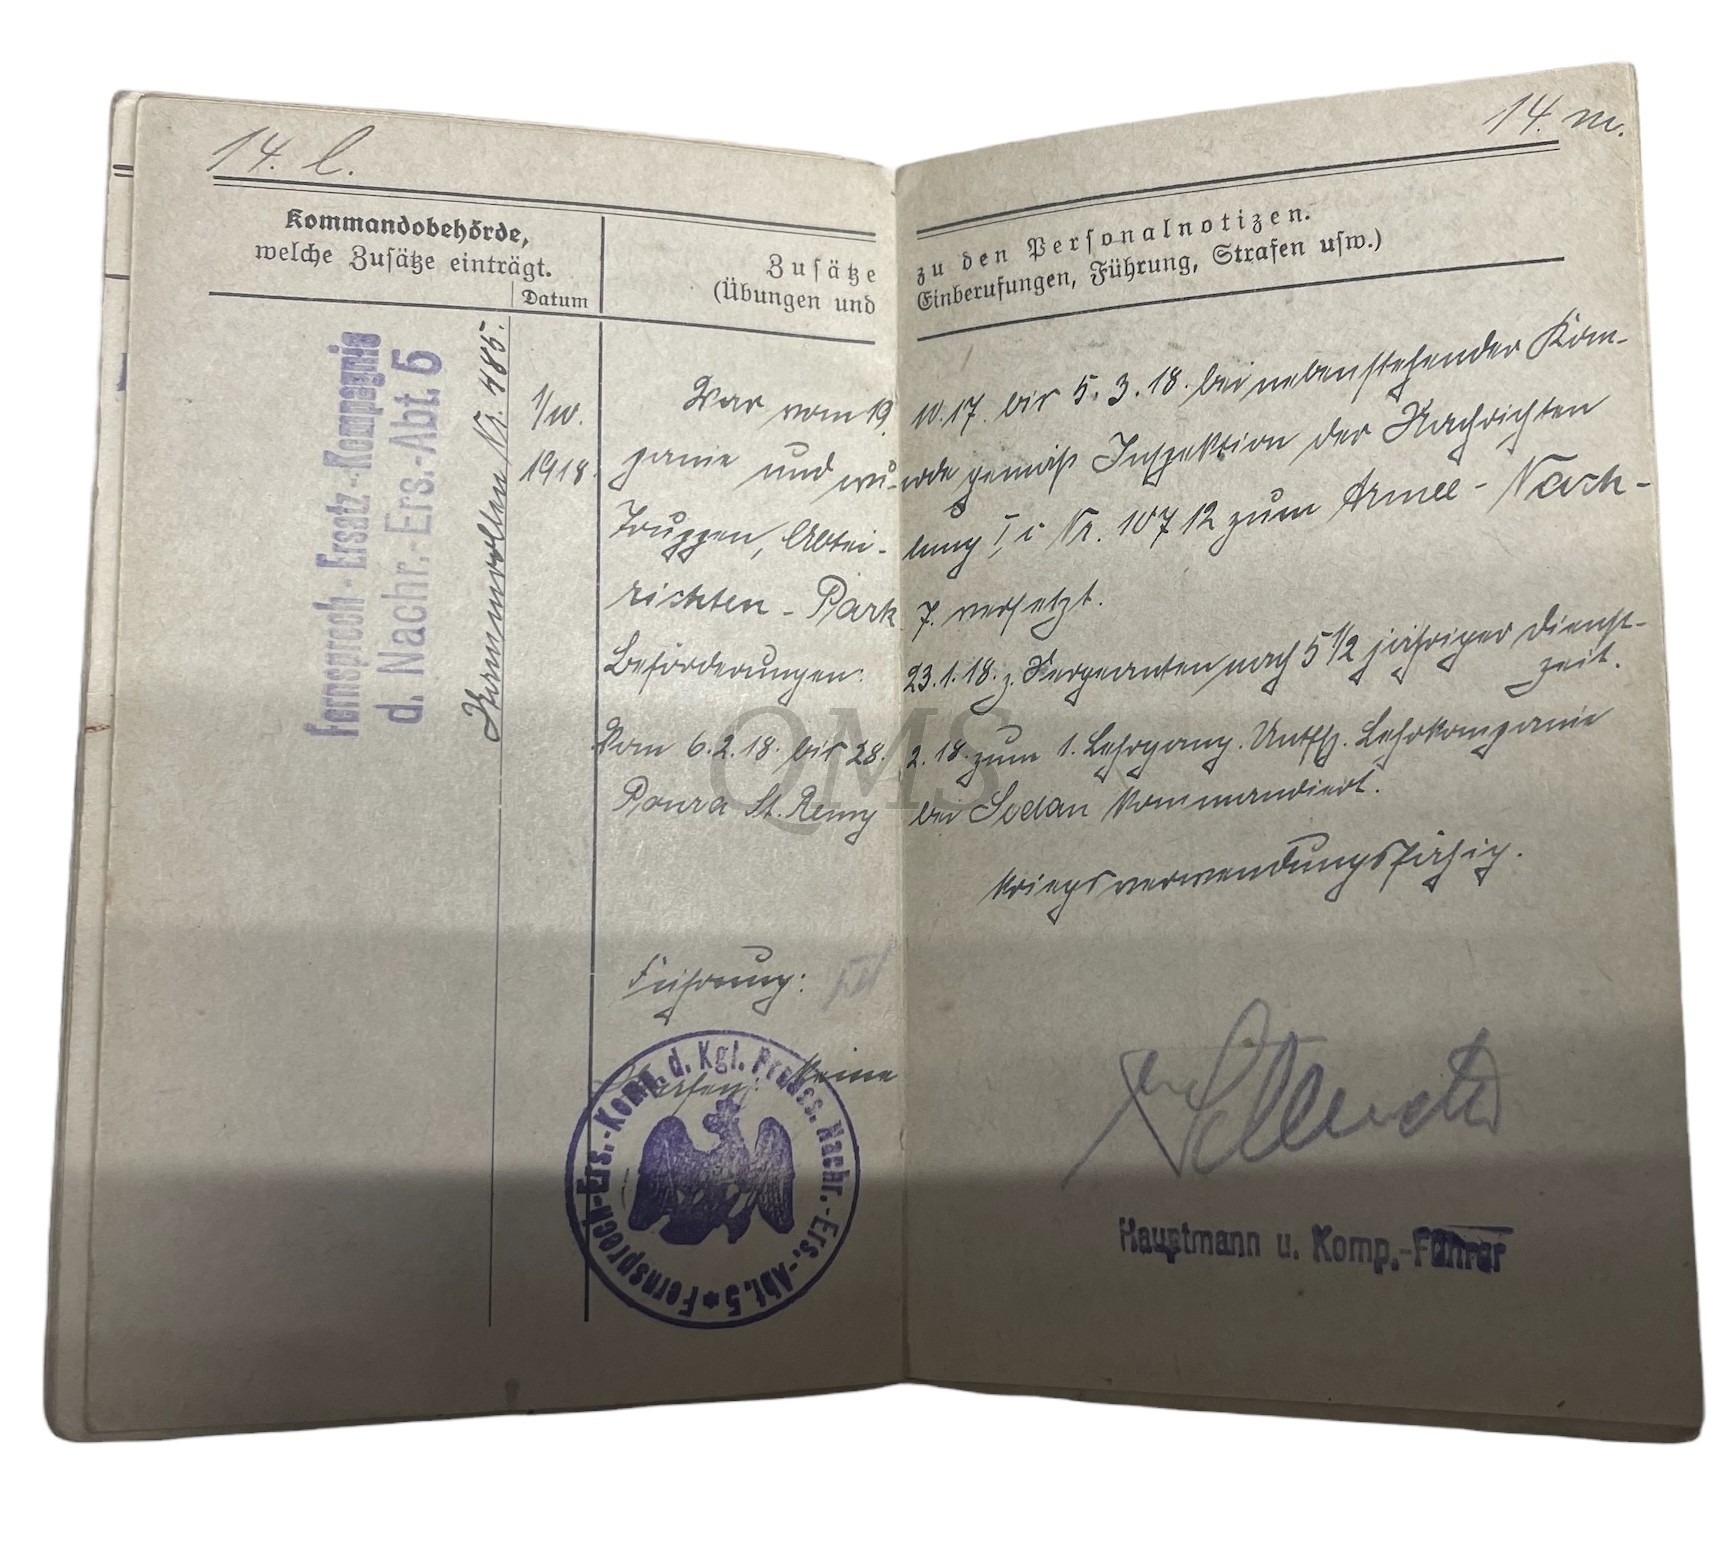 14. l.
14. m.
Kommandobehörde,
welche Zusätze einträgt.
Datum
Zusätze zu den Personalnotizen.
(Übungen und Einberufungen, Führung, Strafen usw.)
Fernsprech-Ersatz-Kompagnie
d. Nachr.-Ers.-Abt. 5
Nr. 485.
1918.
War vom 19. 10. 17. bis 5. 3. 18. bei nebenstehender Kom-
panie und wurde gemäß Inspektion der Nachrichten
Truppen, Abteilung I, i Nr. 10712 zum Armee-Nach-
richten-Park 7. versetzt.
Beförderungen: 23. 1. 18. z. Sergeanten nach 5 1/2 jähriger Dienst-
zeit.
Vom 6. 2. 18. bis 28. 2. 18. zum 1. Lehrgang. Untffz. Lehrkompanie
St. Remy bei Sedan kommandiert.
kriegsverwendungsfähig.
Führung:
Strafen: Keine
Fernsprech-Ers.-Komp. d. Kgl. Preuss. Nachr.-Ers.-Abt. 5 *
Hauptmann u. Komp.-Führer
QMS